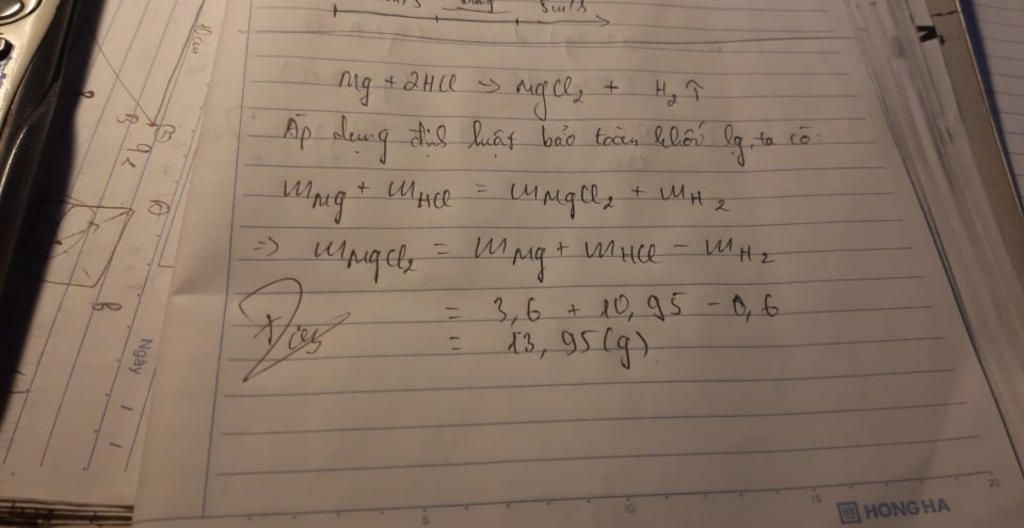 5m/s
Mg + 2HCl -> MgCl2 + H2↑
Áp dụng định luật bảo toàn khối lg, ta có:
mMg + mHCl = mMgCl2 + mH2
=> mMgCl2 = mMg + mHCl - mH2
= 3,6 + 10,95 - 0,6
= 13,95 (g)
Ngày
5 10 15 20
HONG HA